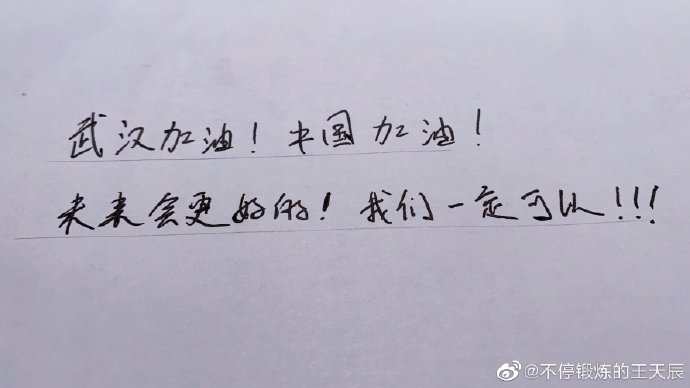 武汉加油！中国加油！
未来会更好的！我们一定可以！！！
@不停锻炼的王天辰